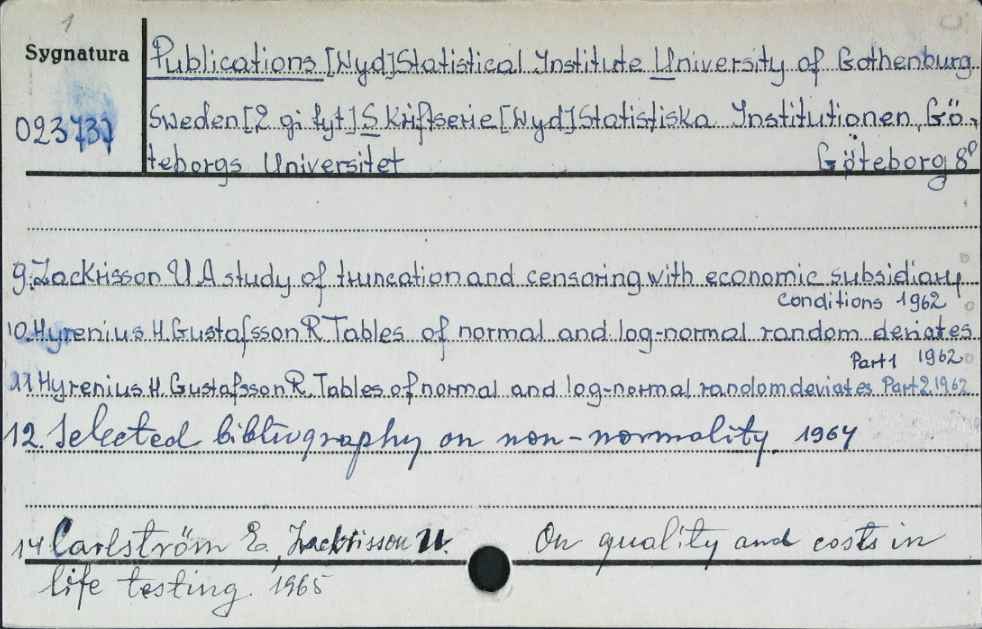 1
Sygnatura
Publications [Wyd] Statistical Institute University of Gothenburg
023737
Sweden [2 gi tyt] Skriftserie [Wyd] Statistiska Institutionen, Gö-
teborgs Universitet Göteborg 8°
9. Zackrisson U A study of truncation and censoring with economic subsidiary
conditions 1962
10. Hyrenius H. Gustafsson R Tables of normal and log-normal random deviates
Part 1 1962
11 Hyrenius H. Gustafsson R. Tables of normal and log-normal random deviates Part 2. 1962
12. Selected bibliography on non-normality. 1964
14 Carlström E., Zackrisson U. On quality and costs in
life testing. 1965